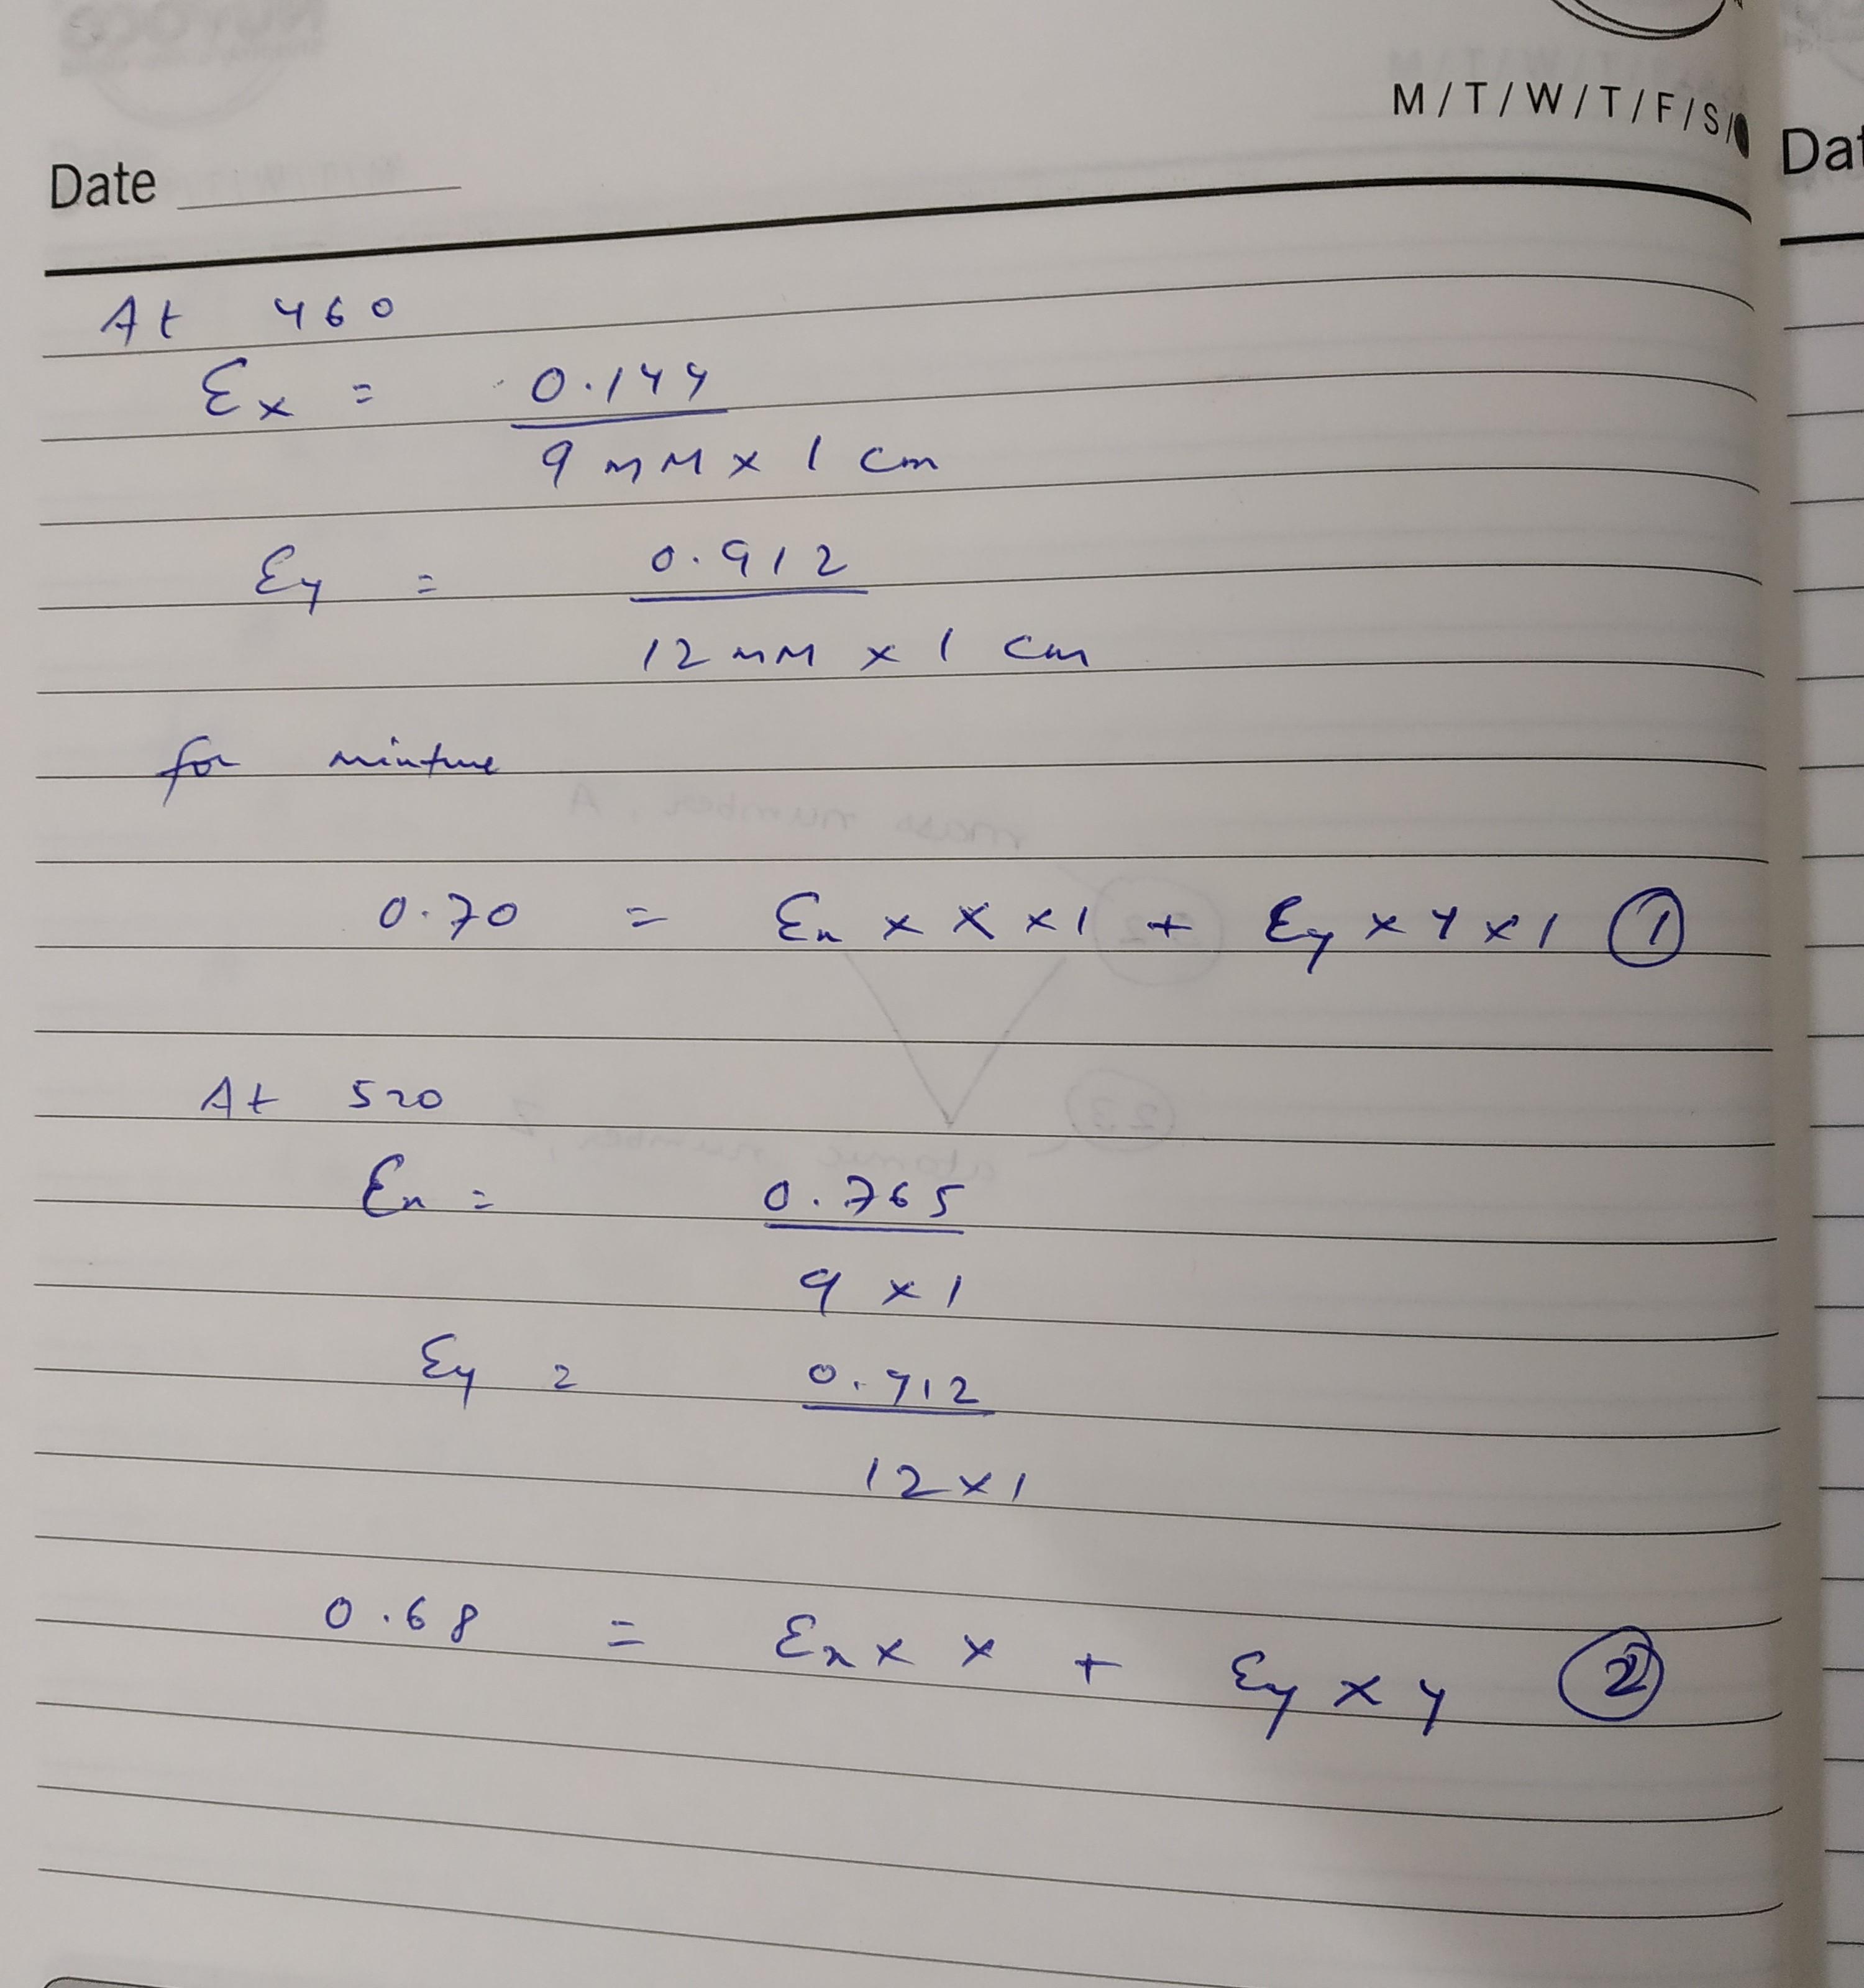 M/T/W/T/F/S/
Date
Dat
At 460
Ɛx = 0.144
9 mM x 1 cm
Ɛy = 0.912
12 mM x 1 cm
for mixture
0.70 = Ɛx x X x 1 + Ɛy x Y x 1 ①
At 520
Ɛx = 0.765
9 x 1
Ɛy = 0.912
12 x 1
0.68 = Ɛx x x + Ɛy x y ②